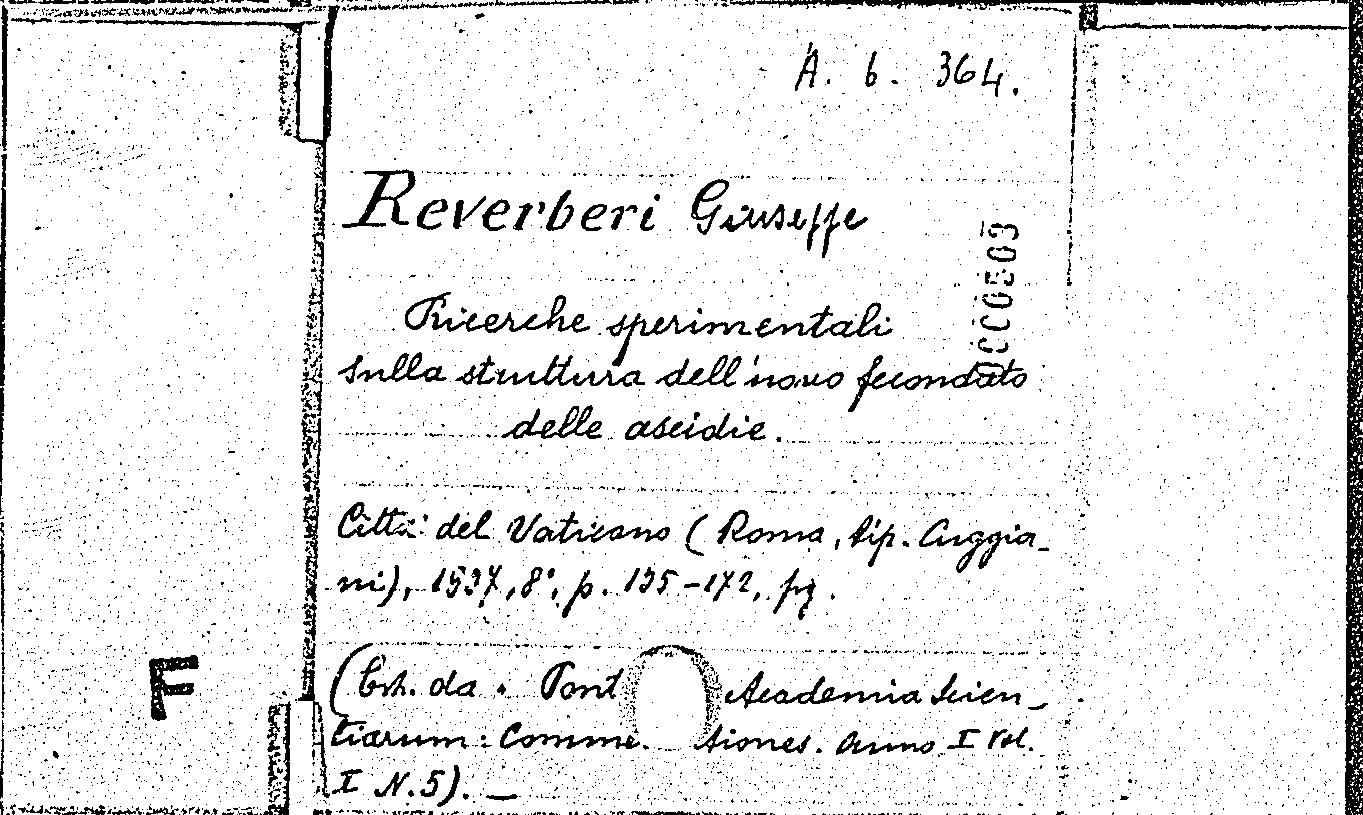 A. b. 364.
Reverberi Giuseppe
000503
Ricerche sperimentali
sulla struttura dell'uovo fecondato
delle ascidie.
Città del Vaticano (Roma, tip. Cuggia-
ni), 1937, 8°, p. 135-172, fig.
(Estr. da. Pont Academia Scien-
tiarum: Comme. tiones. Anno I Vol.
I N. 5). —
F